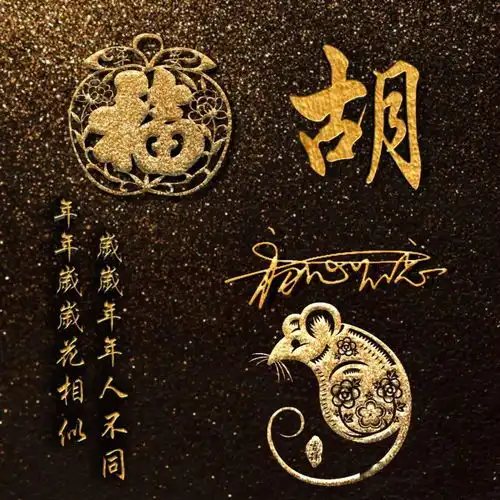 福
胡
年年歲歲花相似
歲歲年年人不同